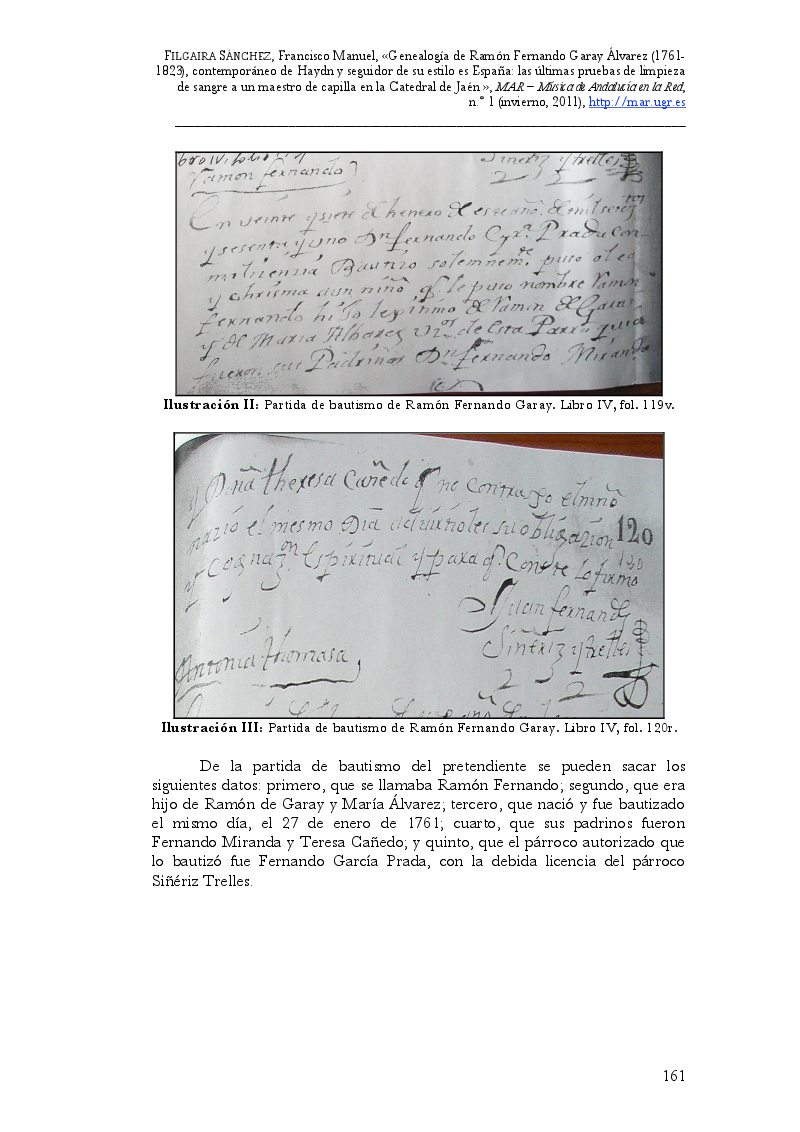 FILGAIRA SÁNCHEZ, Francisco Manuel, «Genealogía de Ramón Fernando Garay Álvarez (1761-
1823), contemporáneo de Haydn y seguidor de su estilo es España: las últimas pruebas de limpieza
de sangre a un maestro de capilla en la Catedral de Jaén », MAR – Música de Andalucía en la Red,
n.º 1 (invierno, 2011), http://mar.ugr.es
bro IV, folio
Ramon fernando
Siñeriz y trelles
En veinte y siete de henero de este año de mil setez.tos
y sesenta y uno Dn fernando Gª Prada con
mi lizenzia Bautizo solemnem.te puso oleo
y chrisma a un niño, q.e le puso nombre Ramon
fernando hijo lexitimo de Ramon de Garai
y de Maria Albarez vz.os de esta Parroquia
fueron sus Padrinos Dn fernando Miranda
y Doña theresa Cañedo q no contraxo el mño
nario el mesmo Dia advirtioles su obligazion
120
y Cognaz.on Espiritual y para q.e Conste lo firmo
120
Juan fernand
Siñeriz y trelles
Antonia thomasa
Ilustración II: Partida de bautismo de Ramón Fernando Garay. Libro IV, fol. 119v.
Ilustración III: Partida de bautismo de Ramón Fernando Garay. Libro IV, fol. 120r.
De la partida de bautismo del pretendiente se pueden sacar los
siguientes datos: primero, que se llamaba Ramón Fernando; segundo, que era
hijo de Ramón de Garay y María Álvarez; tercero, que nació y fue bautizado
el mismo día, el 27 de enero de 1761; cuarto, que sus padrinos fueron
Fernando Miranda y Teresa Cañedo; y quinto, que el párroco autorizado que
lo bautizó fue Fernando García Prada, con la debida licencia del párroco
Siñériz Trelles.
161